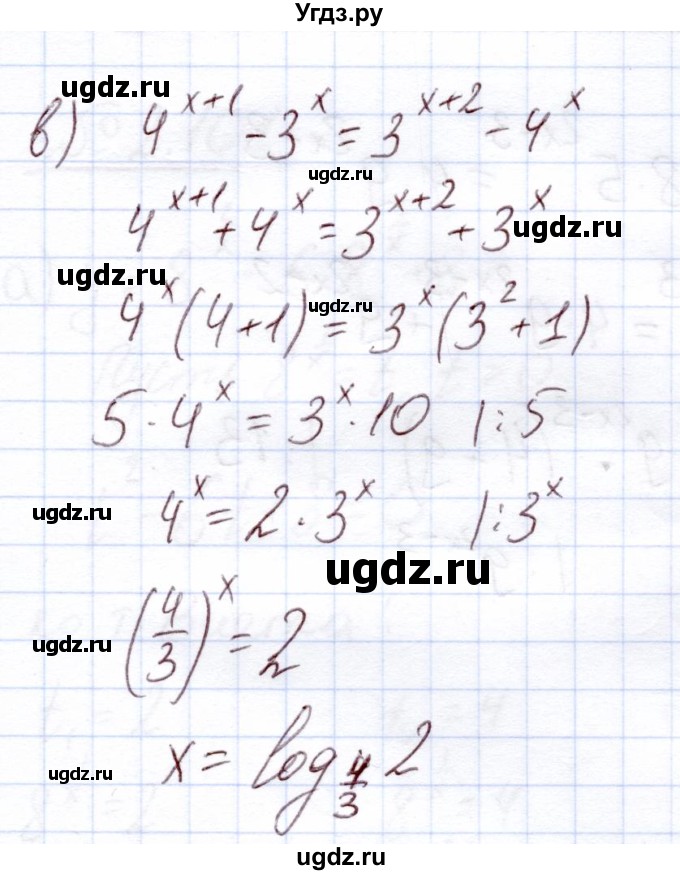 Угдз.ру
ugdz.ru
в) 4^{x+1} - 3^x = 3^{x+2} - 4^x
ugdz.ru
4^{x+1} + 4^x = 3^{x+2} + 3^x
ugdz.ru
ugdz.ru ugdz.ru
4^x (4+1) = 3^x (3^2 + 1)
5 · 4^x = 3^x · 10 | : 5
ugdz.ru 4^x = 2 · 3^x | : 3^x
ugdz.ru
ugdz.ru (4/3)^x = 2
ugdz.ru x = log_{4/3} 2
ugdz.ru